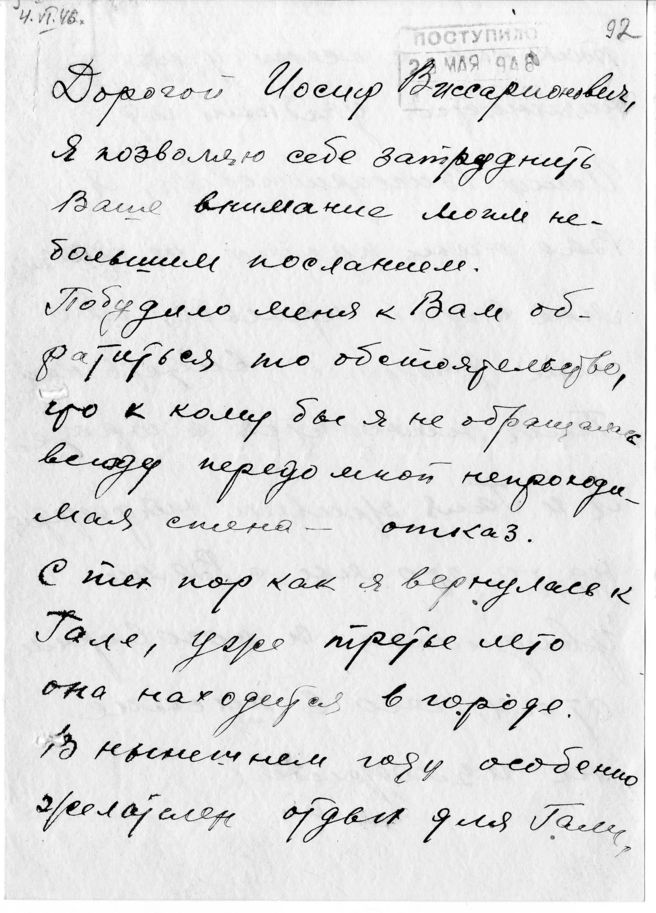 4.VI.46.
92
ПОСТУПИЛО
Дорогой Иосиф Виссарионович,
Я позволяю себе затруднить
Ваше внимание моим не-
большим посланием.
Побудило меня к Вам об-
ратиться то обстоятельство,
что к кому бы я не обращалась
всюду передо мной непроходи-
мая стена — отказ.
С тех пор как я вернулась к
Гале, уже третье лето
она находится в городе.
В нынешнем году особенно
желателен отдых для Гали,